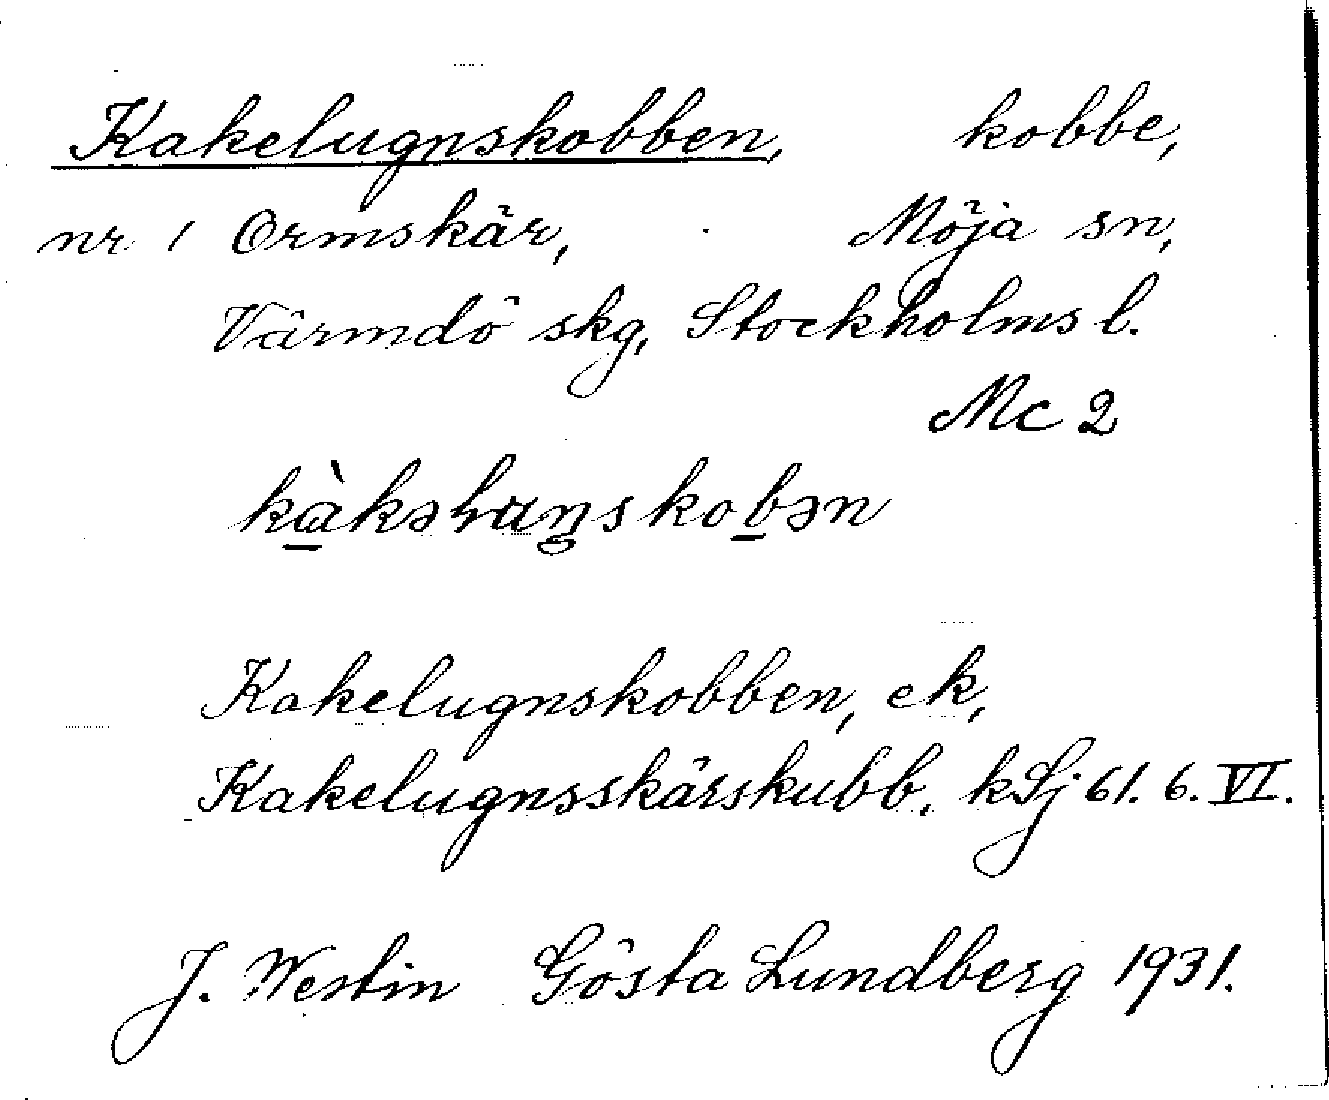 Kakelugnskobben, kobbe,
nr 1 Ormskär, Möja sn,
Värmdö skg, Stockholms l.
Mc 2
kàkəlɯŋskobən
Kakelugnskobben, ek,
Kakelugnsskärskubb. kSj 61. 6. VI.
J. Westin Gösta Lundberg 1931.